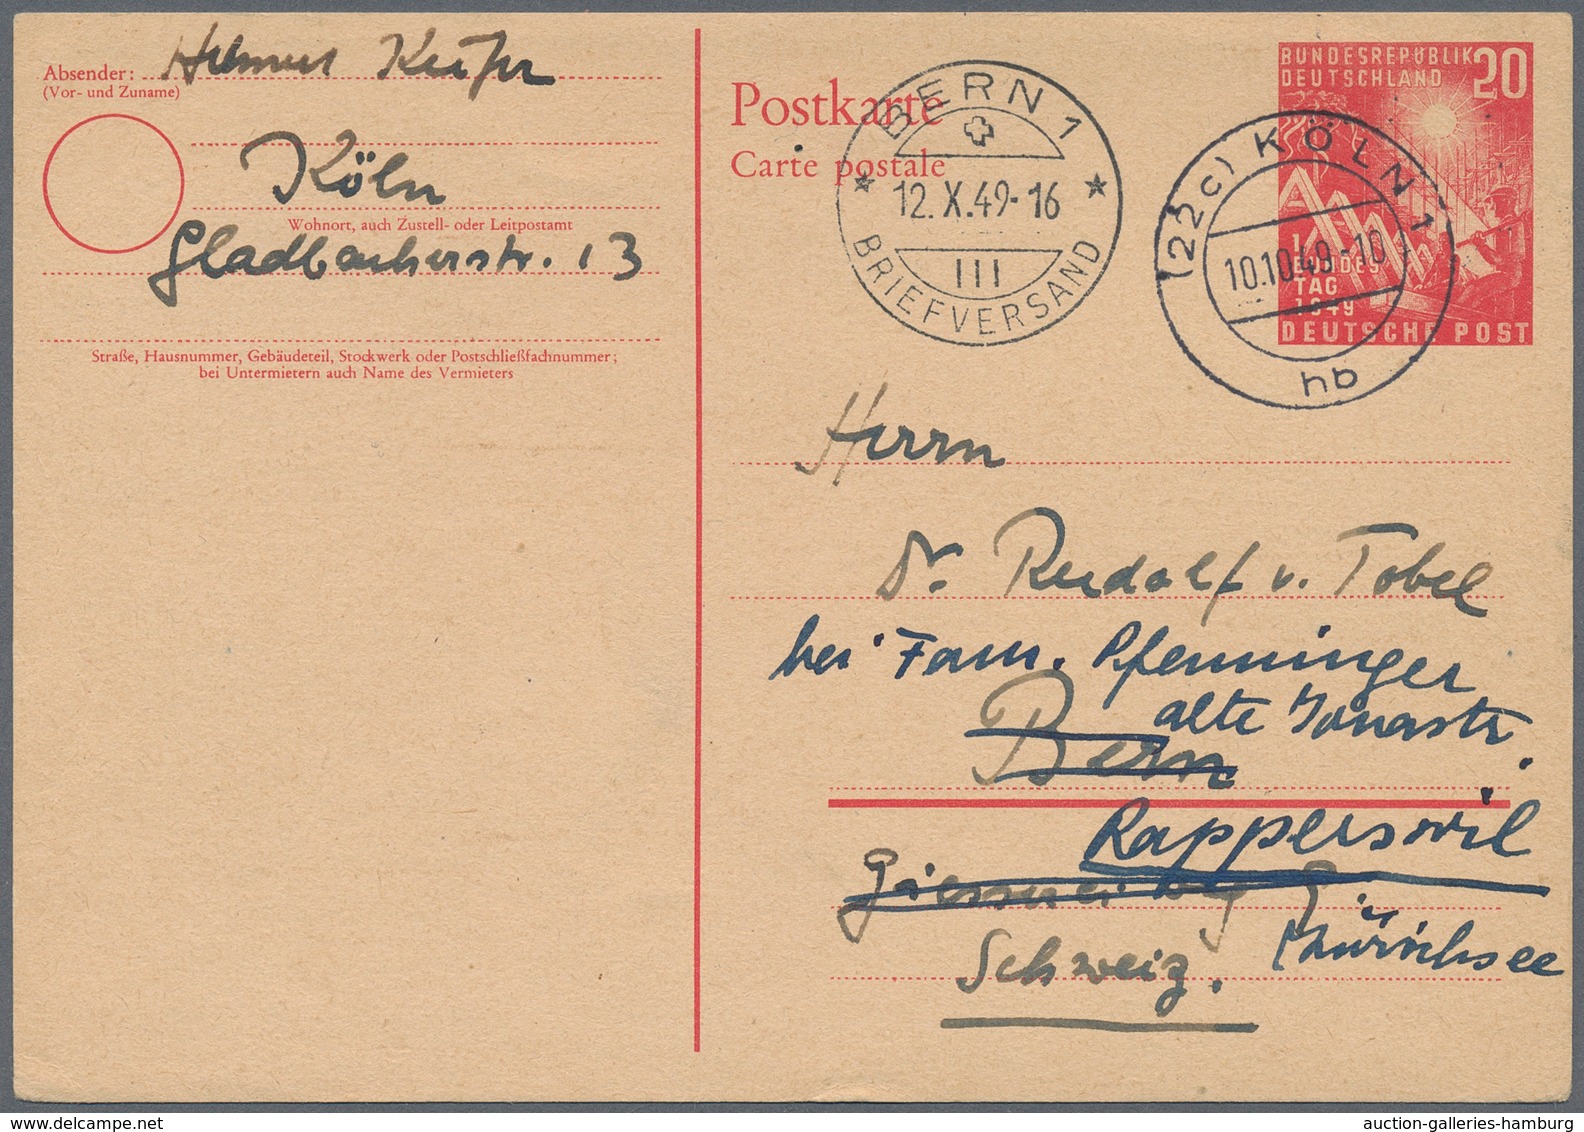 Absender: Helmut
(Vor- und Zuname)
Köln
Wohnort, auch Zustell- oder Leitpostamt
Gladbacherstr. 13
Straße, Hausnummer, Gebäudeteil, Stockwerk oder Postschließfachnummer;
bei Untermietern auch Name des Vermieters
Postkarte
Carte postale
BERN 1
12. X. 49-16
III
BRIEFVERSAND
BUNDESREPUBLIK 20
DEUTSCHLAND
1.
BUNDES
TAG
1949
DEUTSCHE POST
(22c) KÖLN 1
10.10.49-10
hb
Herrn
Dr. Rudolf v. Tobel
bei Fam. Pfenninger
alte Jonastr.
Bern
Rapperswil
Schweiz.
Zürichsee
auction-galleries-hamburg